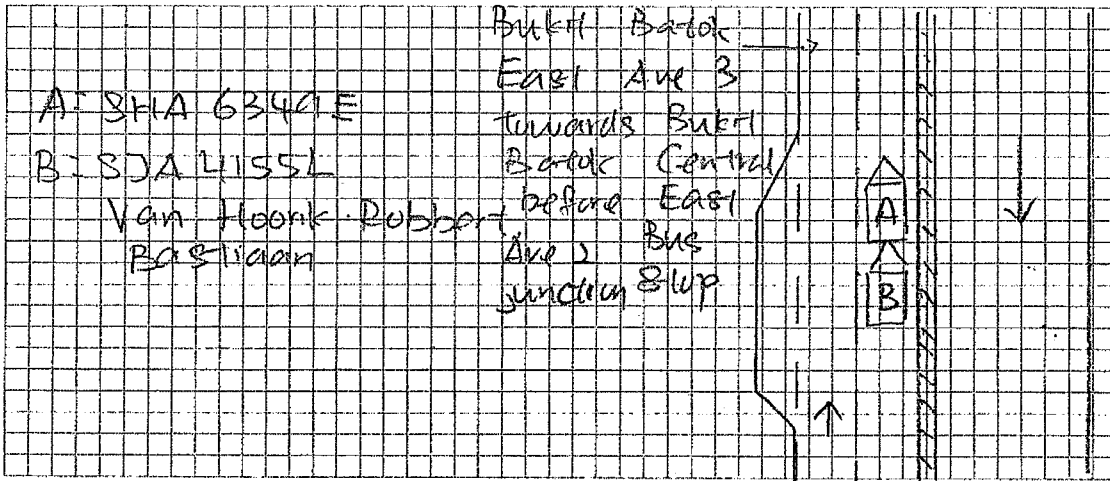 A= SHA 6349E
B= SJA 4155L
Van Hoonk Robbert
Bastiaan
Bukit Batok
East Ave 3
towards Bukit
Batok Central
before East
Ave 2
junction
Bus
Stop
A
B